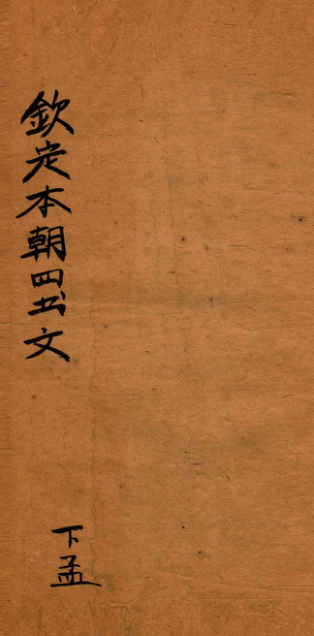 欽定本朝四书文
下孟